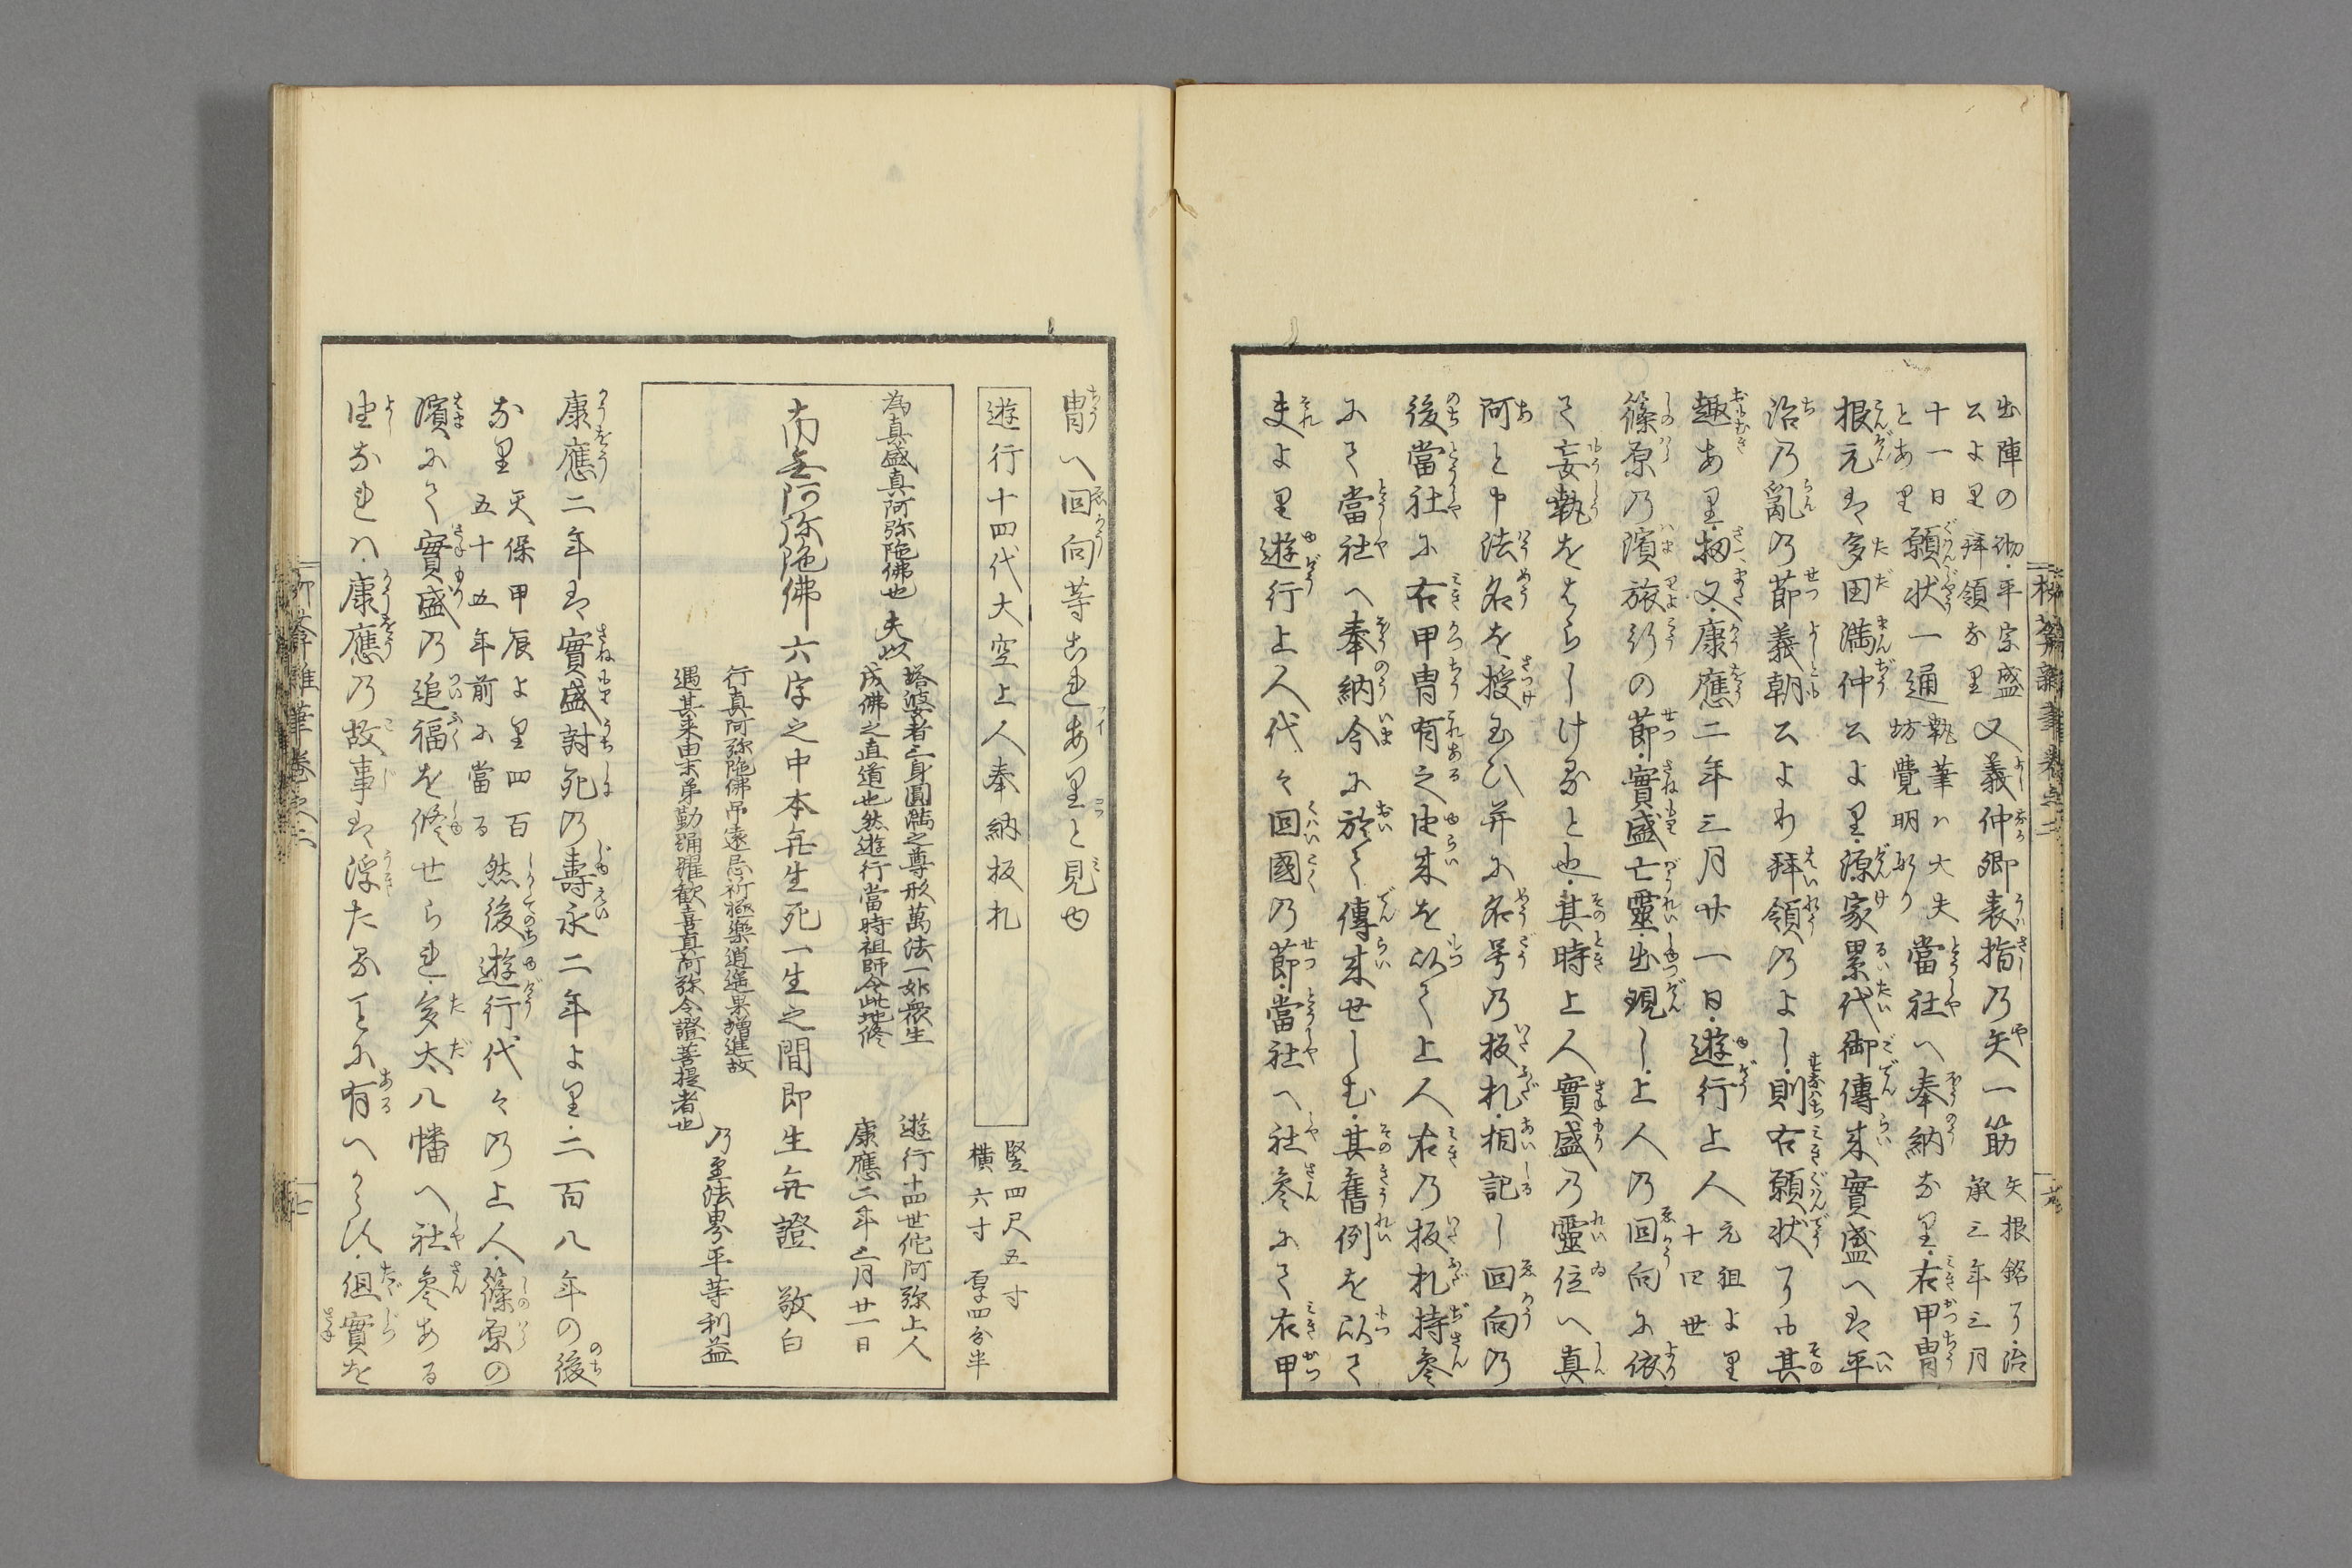 出陣の砌平宗盛
公より拝領なり
又義仲卿表指の矢一筋
矢根銘アリ治
承三年三月
十一日
とあり
願状一通
執筆ハ大夫
坊覺明ナリ
當社へ奉納なり右甲冑
根元は多田満仲公より源家累代御傳来實盛へは平
治の亂の節義朝公より拝領のよし則右願状ニも其
趣あり扨又康應二年三月廿一日遊行上人
元祖より
十四世
篠原の濱旅行の節實盛亡靈出現し上人の回向に依
て妄執をはらしけるとぞ其時上人實盛の靈位へ真
阿と申法名を授玉ひ并に名号の板札相記し回向の
後當社に右甲冑有之由来を以て上人右の板札持參
にて當社へ奉納今に於て傳来せしむ其舊例を以て
夫より遊行上人代々回國の節當社へ社參にて右甲
冑へ回向等これありと見ゆ
遊行十四代大空上人奉納板札
竪四尺五寸
横六寸
厚四分半
為真盛真阿弥陀佛也
夫以
塔婆者三身圓満之尊形萬法一如衆生
成佛之直道也然遊行當時祖師今此地修
遊行十四世佗阿弥上人
康應二年三月廿一日
南無阿弥陀佛六字之中本無生死一生之間即生無證 敬白
行真阿弥陀佛吊遠忌祈極樂逍遥果増進故
遇其来由末弟勤踊躍歓喜真阿弥令證菩提者也
乃至法界平等利益
康應二年は實盛討死の壽永二年より二百八年の後
なり
天保甲辰より四百
五十五年前に當る
然後遊行代々の上人篠原の
濱にて實盛の追福を修せられ多太八幡へ社參ある
由なれハ康應の故事は浮たる事に有へからす但實を
柳菴雜筆卷之二
七